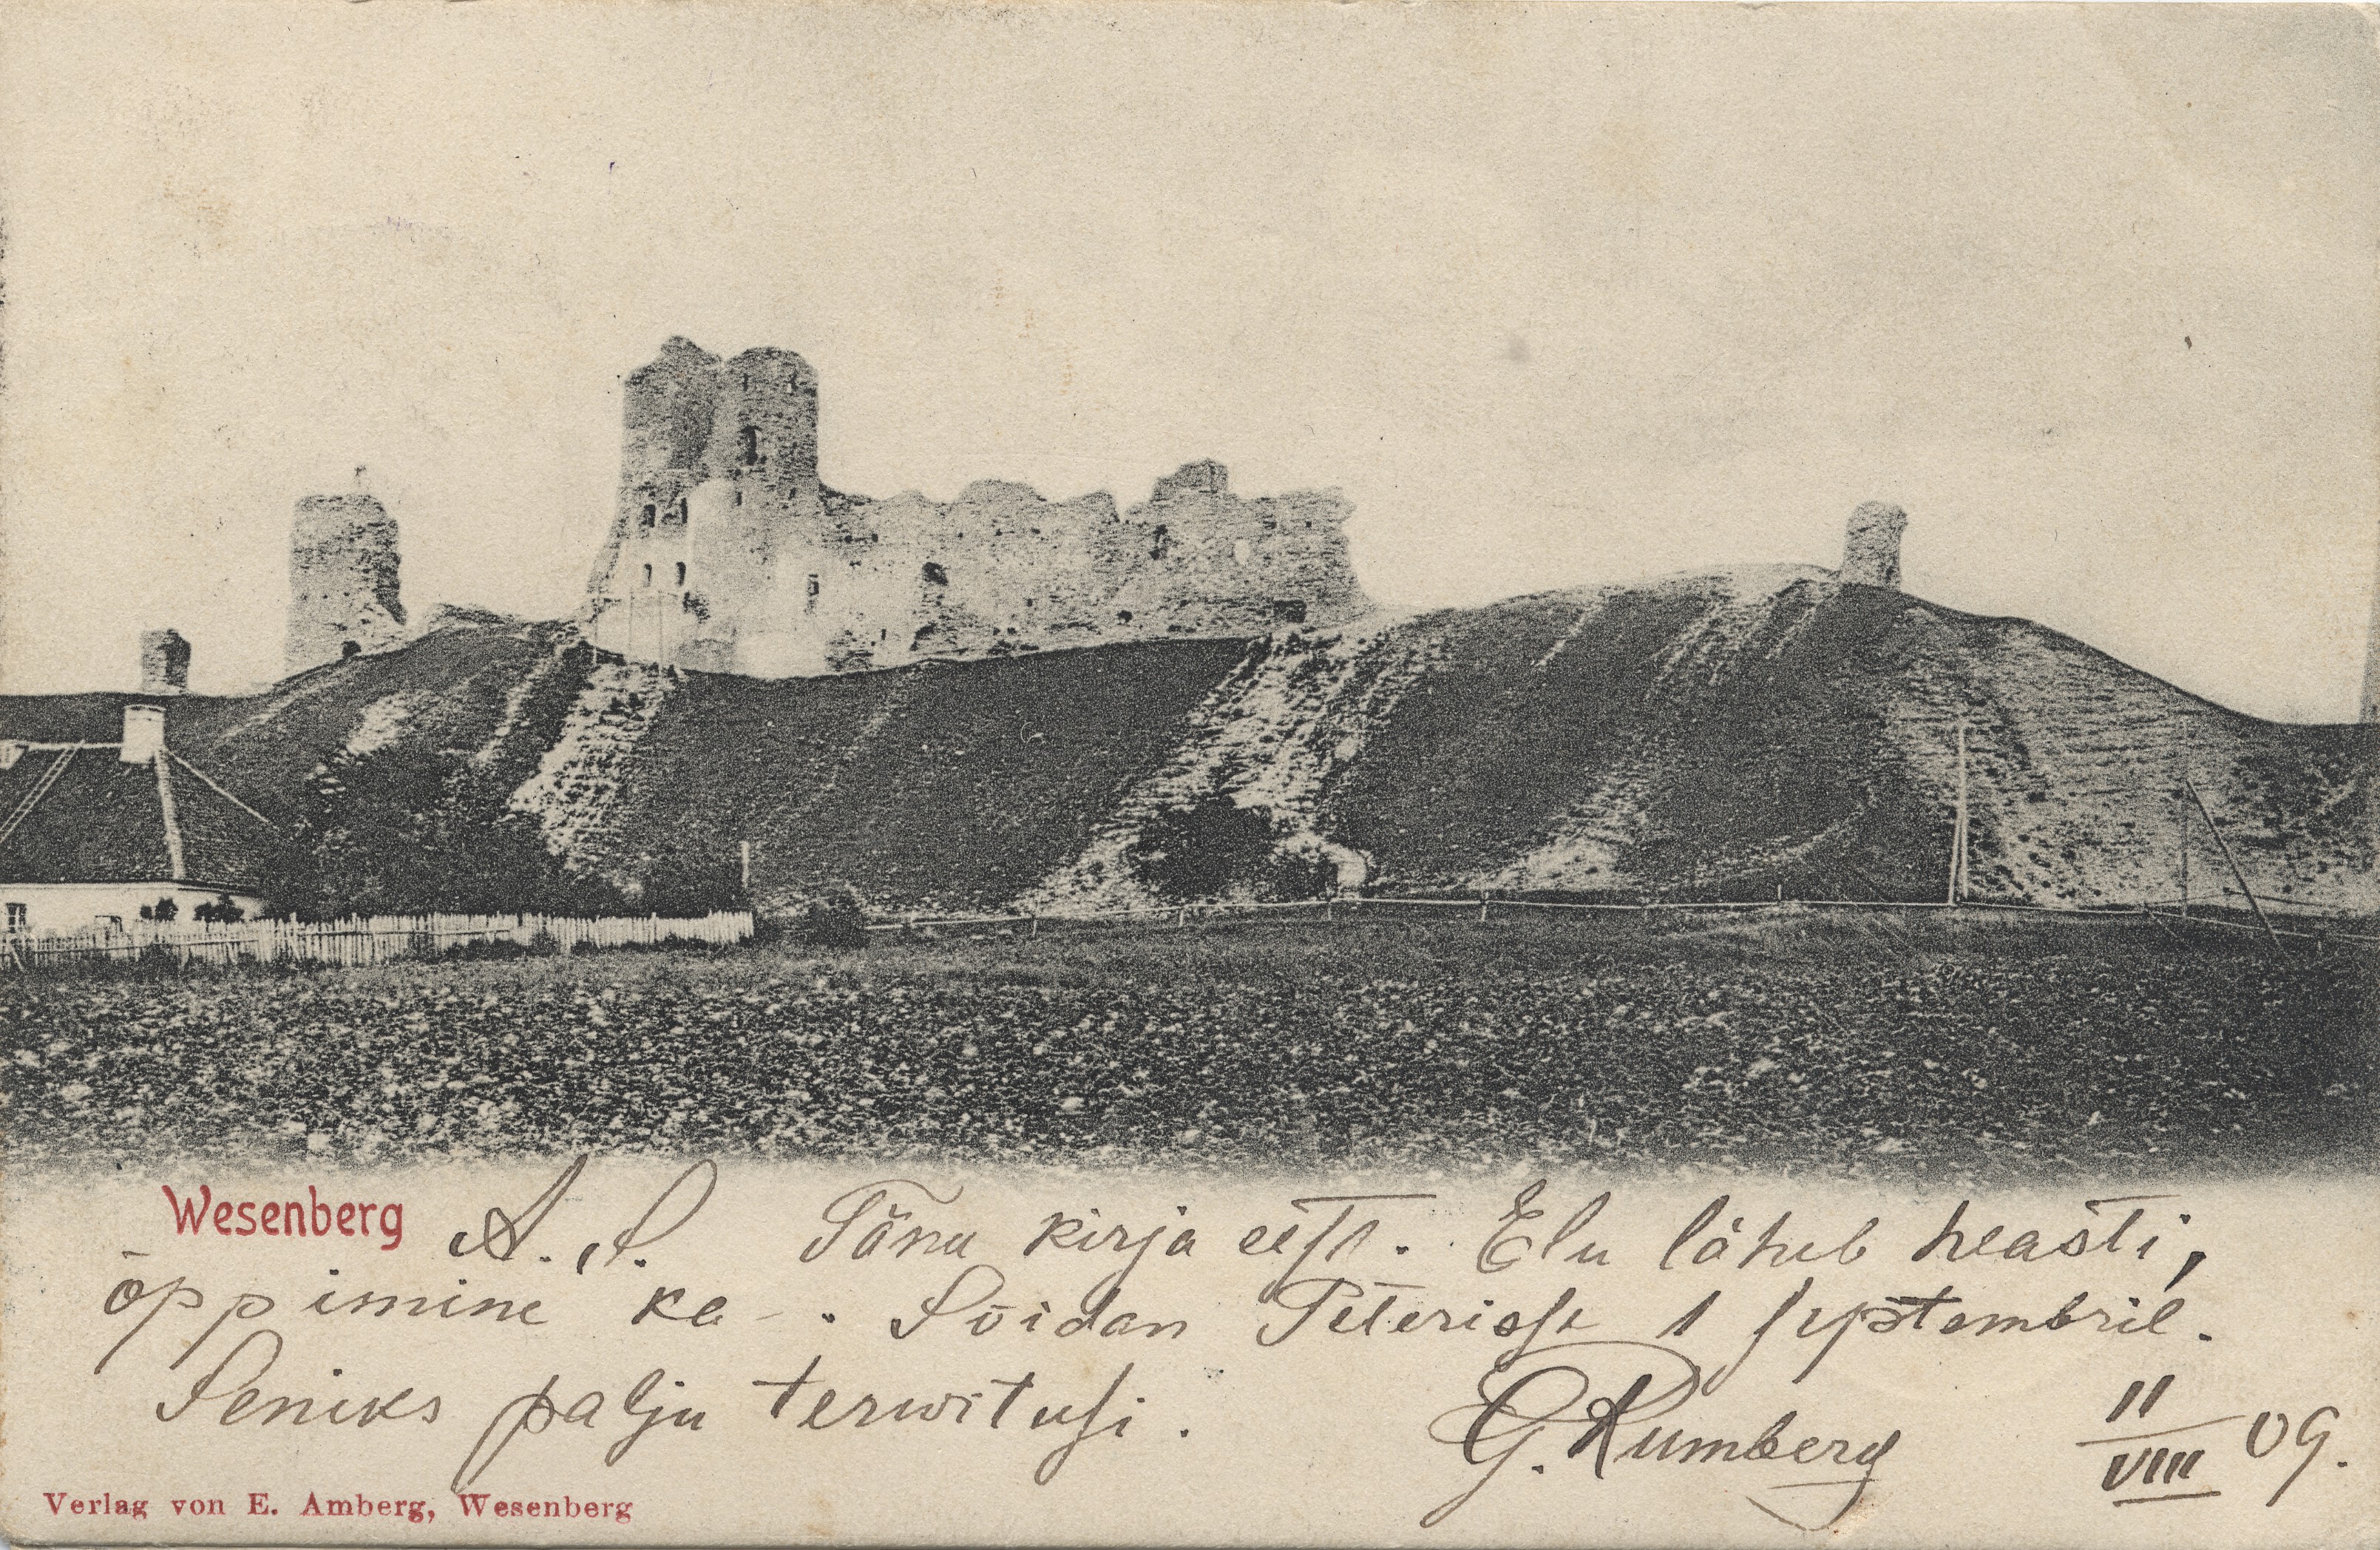 Wesenberg
A. S. Tänu kirja eest. Elu läheb heasti,
õppimine ka –. Sõidan Peterisse 1 septembril.
Seniks palju terwitusi.
G. Rumberg
11/VIII 09.
Verlag von E. Amberg, Wesenberg